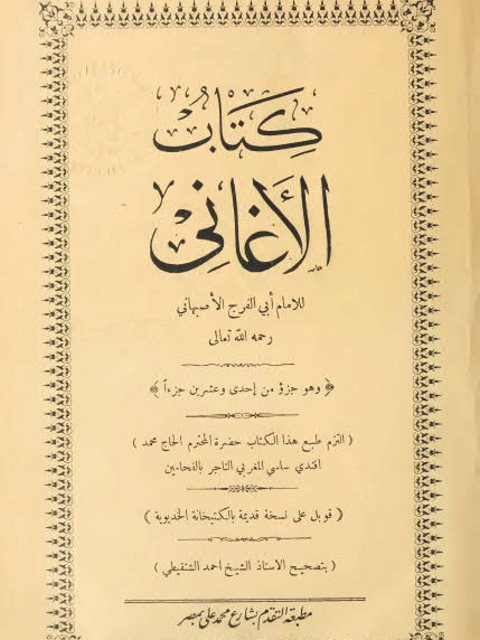 كِتَابُ
الأَغَانِي
للامام أبي الفرج الأصبهاني
رحمه الله تعالى
﴿ وهو جزؤ من إحدى وعشرين جزءاً ﴾
( التزم طبع هذا الكتاب حضرة المحترم الحاج محمد )
افندي ساسي المغربي التاجر بالفحامين
( قوبل على نسخة قديمة بالكتبخانة الخديوية )
( بتصحيح الاستاذ الشيخ احمد الشنقيطي )
مطبعة التقدم بشارع محمد علي بمصر